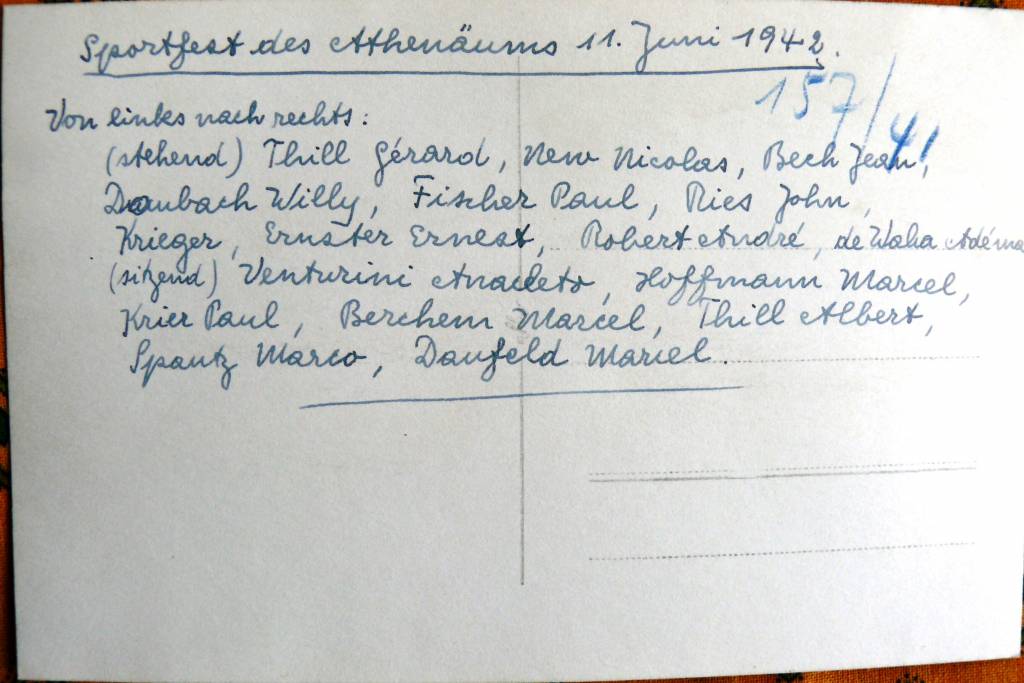 Sportfest des Athenäums 11. Juni 1942.
157/41
Von links nach rechts:
(stehend) Thill Gérard, New Nicolas, Bech Jean,
Daubach Willy, Fischer Paul, Ries John,
Krieger, Ernster Ernest, Robert André, de Waha Adéma
(sitzend) Venturini Anacleto, Hoffmann Marcel,
Krier Paul, Berchem Marcel, Thill Albert,
Spautz Marco, Daufeld Marcel.